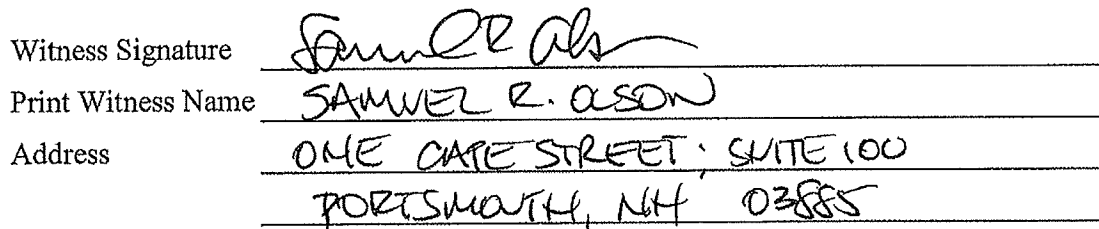 Witness Signature Samuel R Olson
Print Witness Name SAMUEL R. OLSON
Address ONE CATE STREET, SUITE 100
PORTSMOUTH, NH 03885